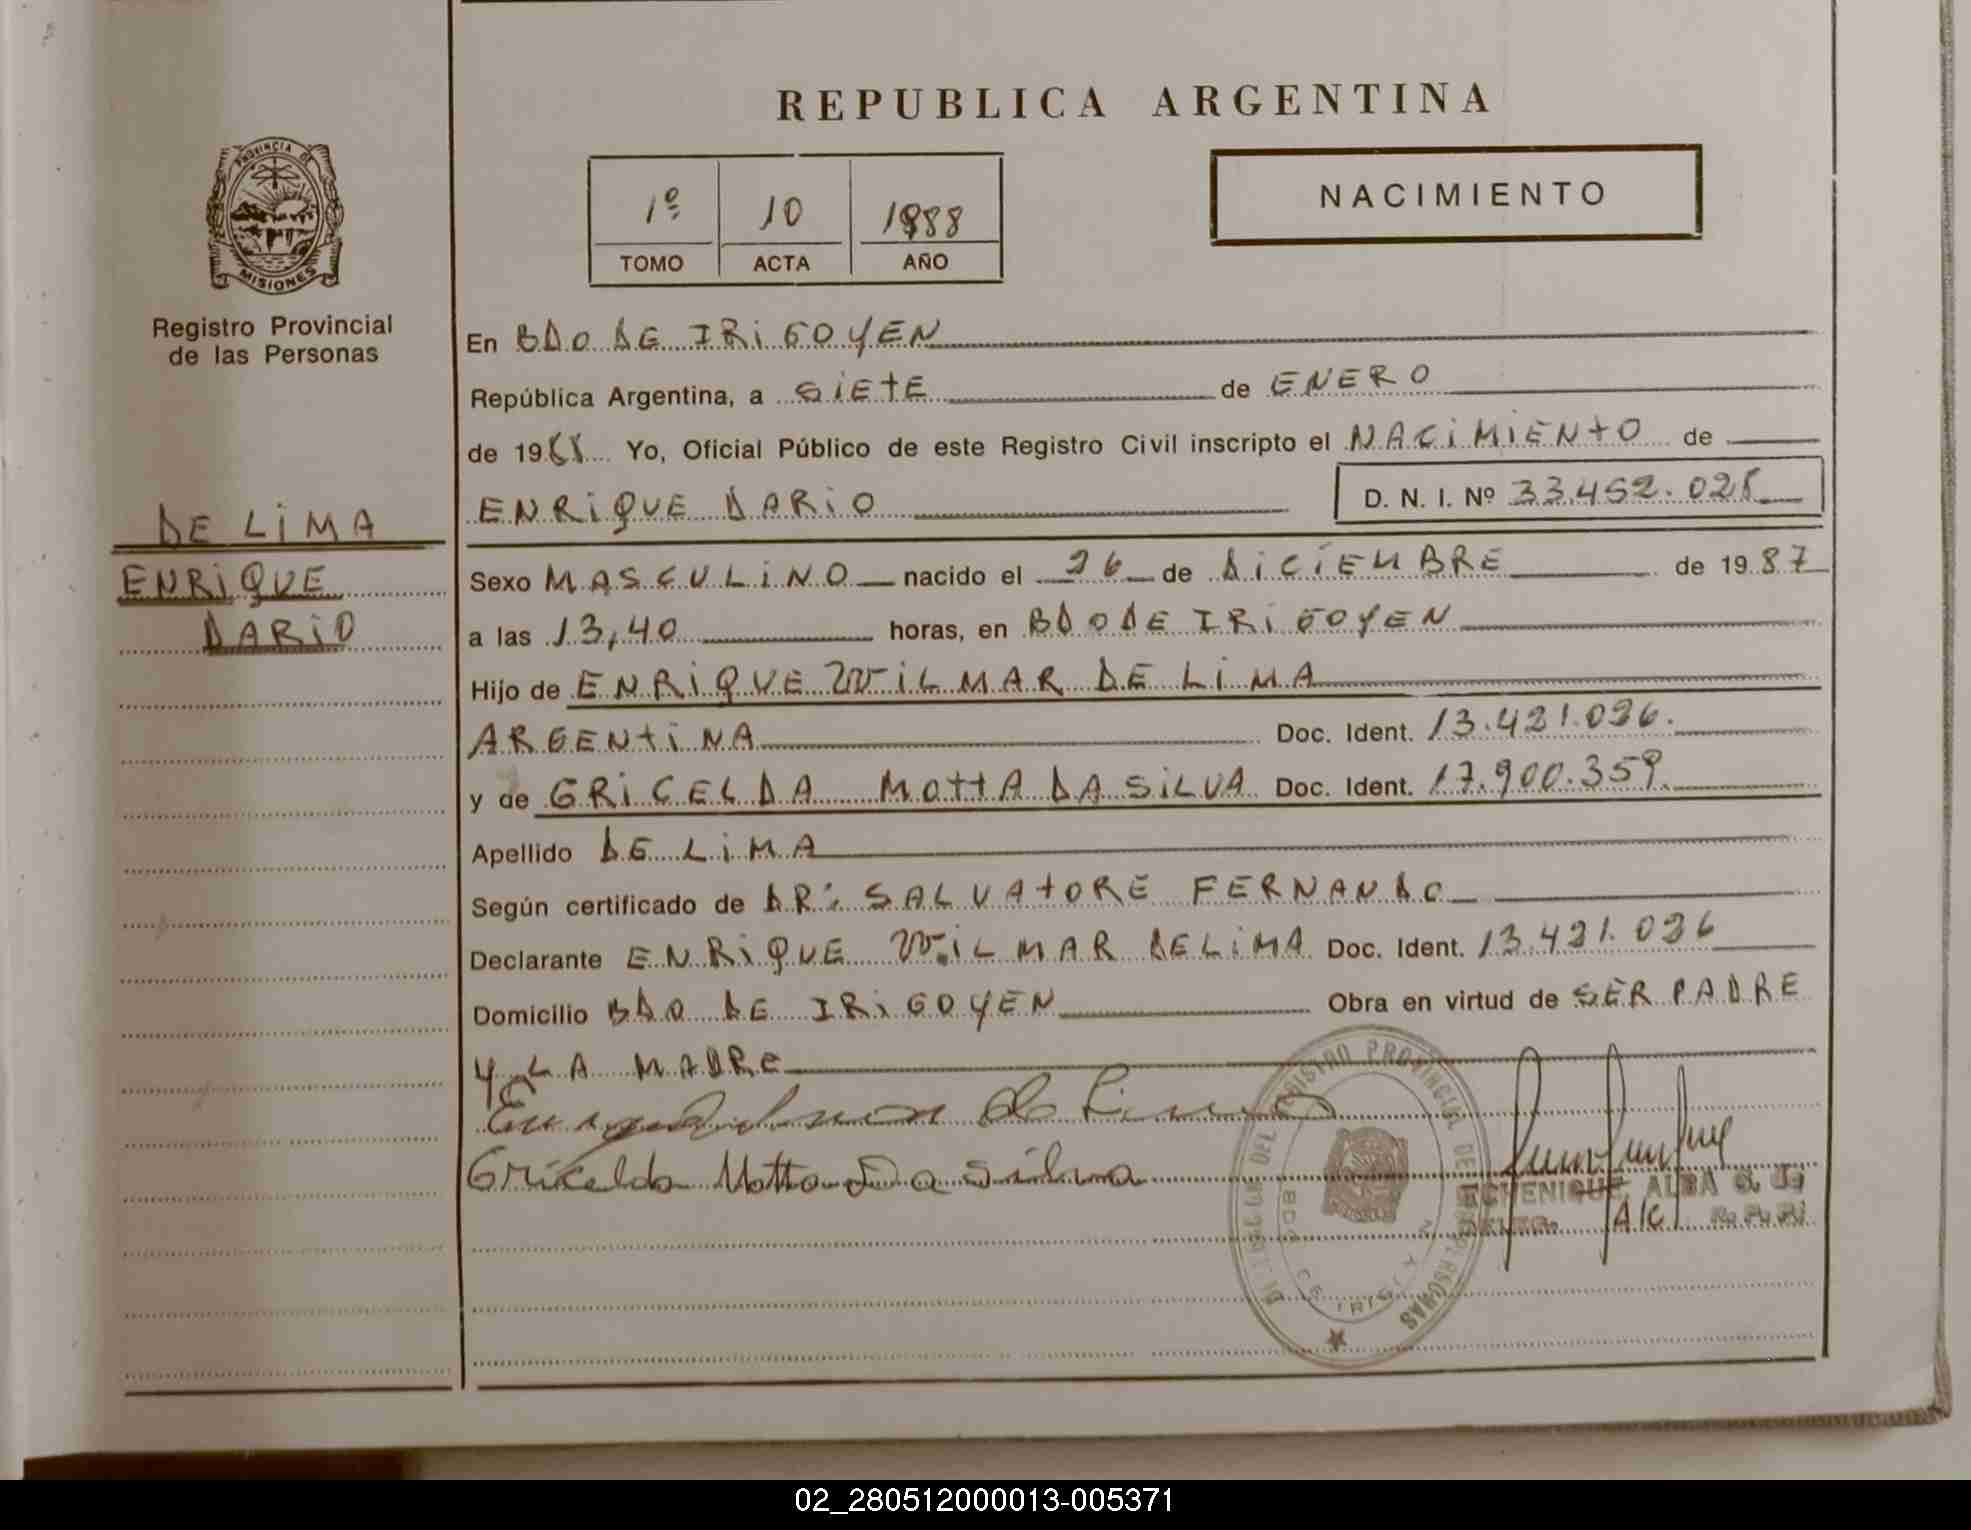 REPUBLICA ARGENTINA
PROVINCIA DE MISIONES
Registro Provincial
de las Personas
1º 10 1988
TOMO ACTA AÑO
NACIMIENTO
En BDO DE IRIGOYEN
República Argentina, a SIETE de ENERO
de 1988 Yo, Oficial Público de este Registro Civil inscripto el NACIMIENTO de
ENRIQUE DARIO D. N. I. Nº 33.452.028
DE LIMA
ENRIQUE
DARIO
Sexo MASCULINO nacido el 26 de DICIEMBRE de 1987
a las 13,40 horas, en BDO DE IRIGOYEN
Hijo de ENRIQUE WILMAR DE LIMA
ARGENTINA Doc. Ident. 13.421.026.
y de GRICELDA MOTTA DA SILVA Doc. Ident. 17.900.359.
Apellido DE LIMA
Según certificado de DR: SALVATORE FERNANDO
Declarante ENRIQUE WILMAR DE LIMA Doc. Ident. 13.421.026
Domicilio BDO DE IRIGOYEN Obra en virtud de SER PADRE
Y LA MADRE
de Lima
Gricelda Motta Da Silva
REGISTRO PROVINCIAL DE LAS PERSONAS
ECHENIQUE, ALBA
A/C
02_280512000013-005371